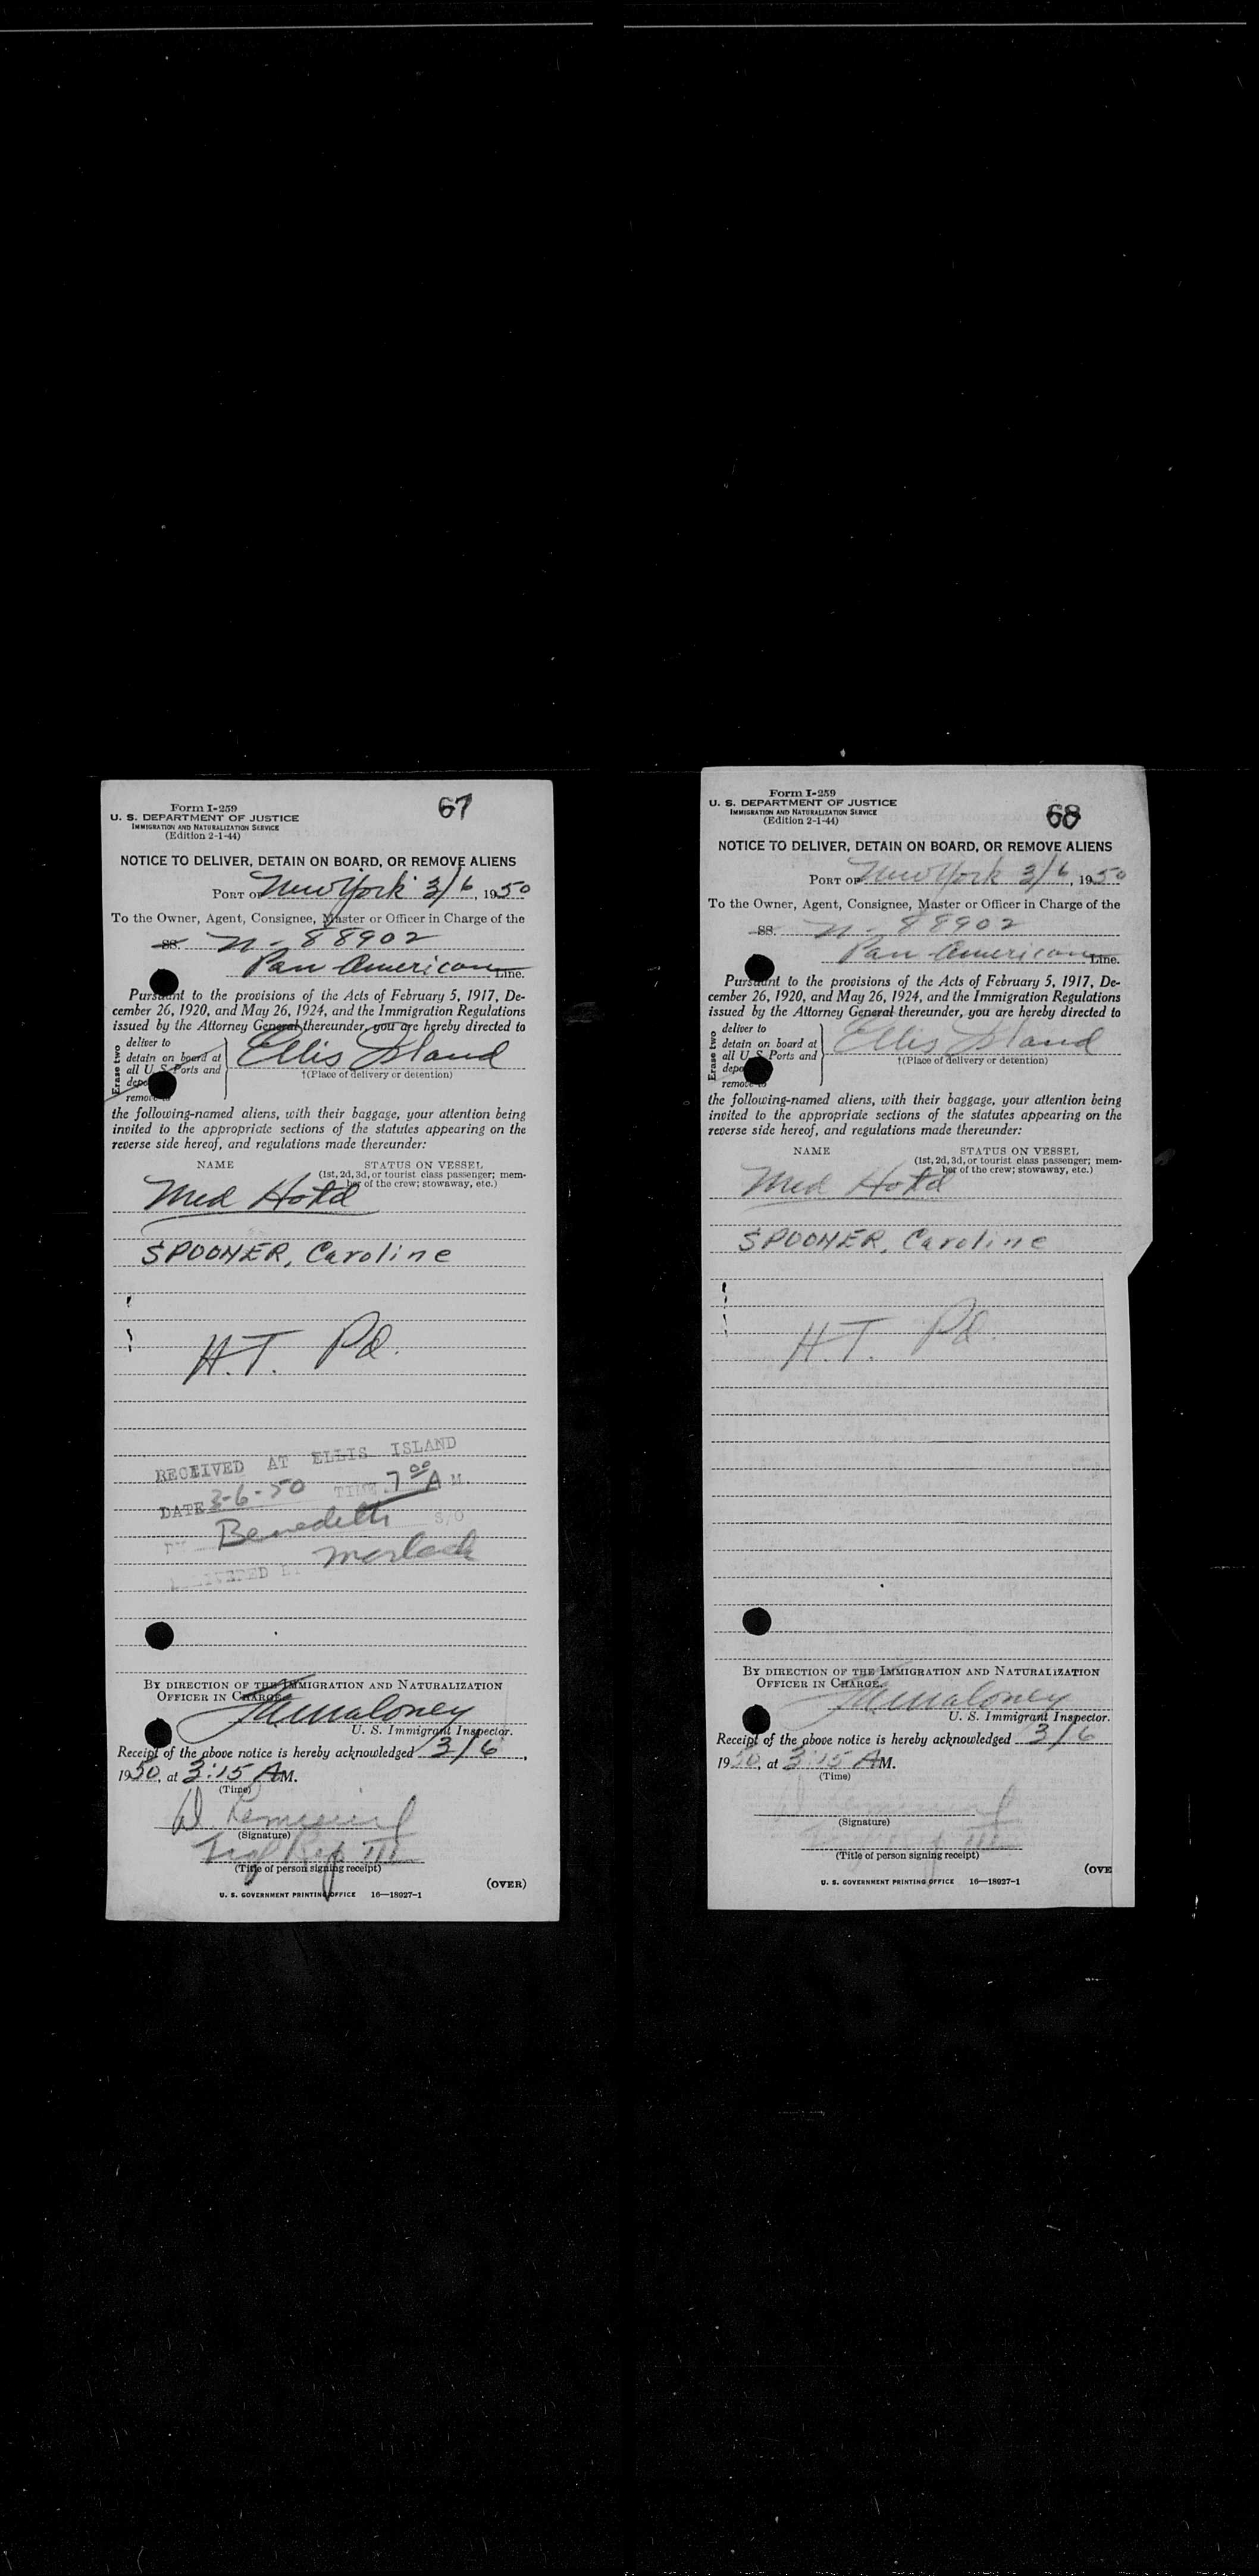 67
Form I-259
U. S. DEPARTMENT OF JUSTICE
IMMIGRATION AND NATURALIZATION SERVICE
(Edition 2-1-44)
NOTICE TO DELIVER, DETAIN ON BOARD, OR REMOVE ALIENS
PORT OF New York 3/6, 1950
To the Owner, Agent, Consignee, Master or Officer in Charge of the
SS. N-88902
Pan American Line.
Pursuant to the provisions of the Acts of February 5, 1917, De-
cember 26, 1920, and May 26, 1924, and the Immigration Regulations
issued by the Attorney General thereunder, you are hereby directed to
Erase two
deliver to
detain on board at
all U S Ports and
remove to
Ellis Island
†(Place of delivery or detention)
the following-named aliens, with their baggage, your attention being
invited to the appropriate sections of the statutes appearing on the
reverse side hereof, and regulations made thereunder:
NAME STATUS ON VESSEL
(1st, 2d, 3d, or tourist class passenger; mem-
ber of the crew; stowaway, etc.)
Med Hotd
SPOONER, Caroline
H.T. Pd.
RECEIVED AT ELLIS ISLAND
DATE 3-6-50 TIME 7 00 A M
Benedetti S/O
DELIVERED BY
BY DIRECTION OF THE IMMIGRATION AND NATURALIZATION
OFFICER IN CHARGE.
Maloney
U. S. Immigrant Inspector.
Receipt of the above notice is hereby acknowledged 3/6,
1950, at 3:15 AM.
(Time)
(Signature)
(Title of person signing receipt)
(OVER)
U. S. GOVERNMENT PRINTING OFFICE 16—18927-1
68
Form I-259
U. S. DEPARTMENT OF JUSTICE
IMMIGRATION AND NATURALIZATION SERVICE
(Edition 2-1-44)
NOTICE TO DELIVER, DETAIN ON BOARD, OR REMOVE ALIENS
PORT OF New York 3/6, 1950
To the Owner, Agent, Consignee, Master or Officer in Charge of the
SS. N-88902
Pan American Line.
Pursuant to the provisions of the Acts of February 5, 1917, De-
cember 26, 1920, and May 26, 1924, and the Immigration Regulations
issued by the Attorney General thereunder, you are hereby directed to
Erase two
deliver to
detain on board at
all U S Ports and
remove to
Ellis Island
†(Place of delivery or detention)
the following-named aliens, with their baggage, your attention being
invited to the appropriate sections of the statutes appearing on the
reverse side hereof, and regulations made thereunder:
NAME STATUS ON VESSEL
(1st, 2d, 3d, or tourist class passenger; mem-
ber of the crew; stowaway, etc.)
Med Hotd
SPOONER, Caroline
H.T. Pd.
BY DIRECTION OF THE IMMIGRATION AND NATURALIZATION
OFFICER IN CHARGE.
Maloney
U. S. Immigrant Inspector.
Receipt of the above notice is hereby acknowledged 3/6
1950, at 3:15 AM.
(Time)
(Signature)
(Title of person signing receipt)
(OVE
U. S. GOVERNMENT PRINTING OFFICE 16—18927-1